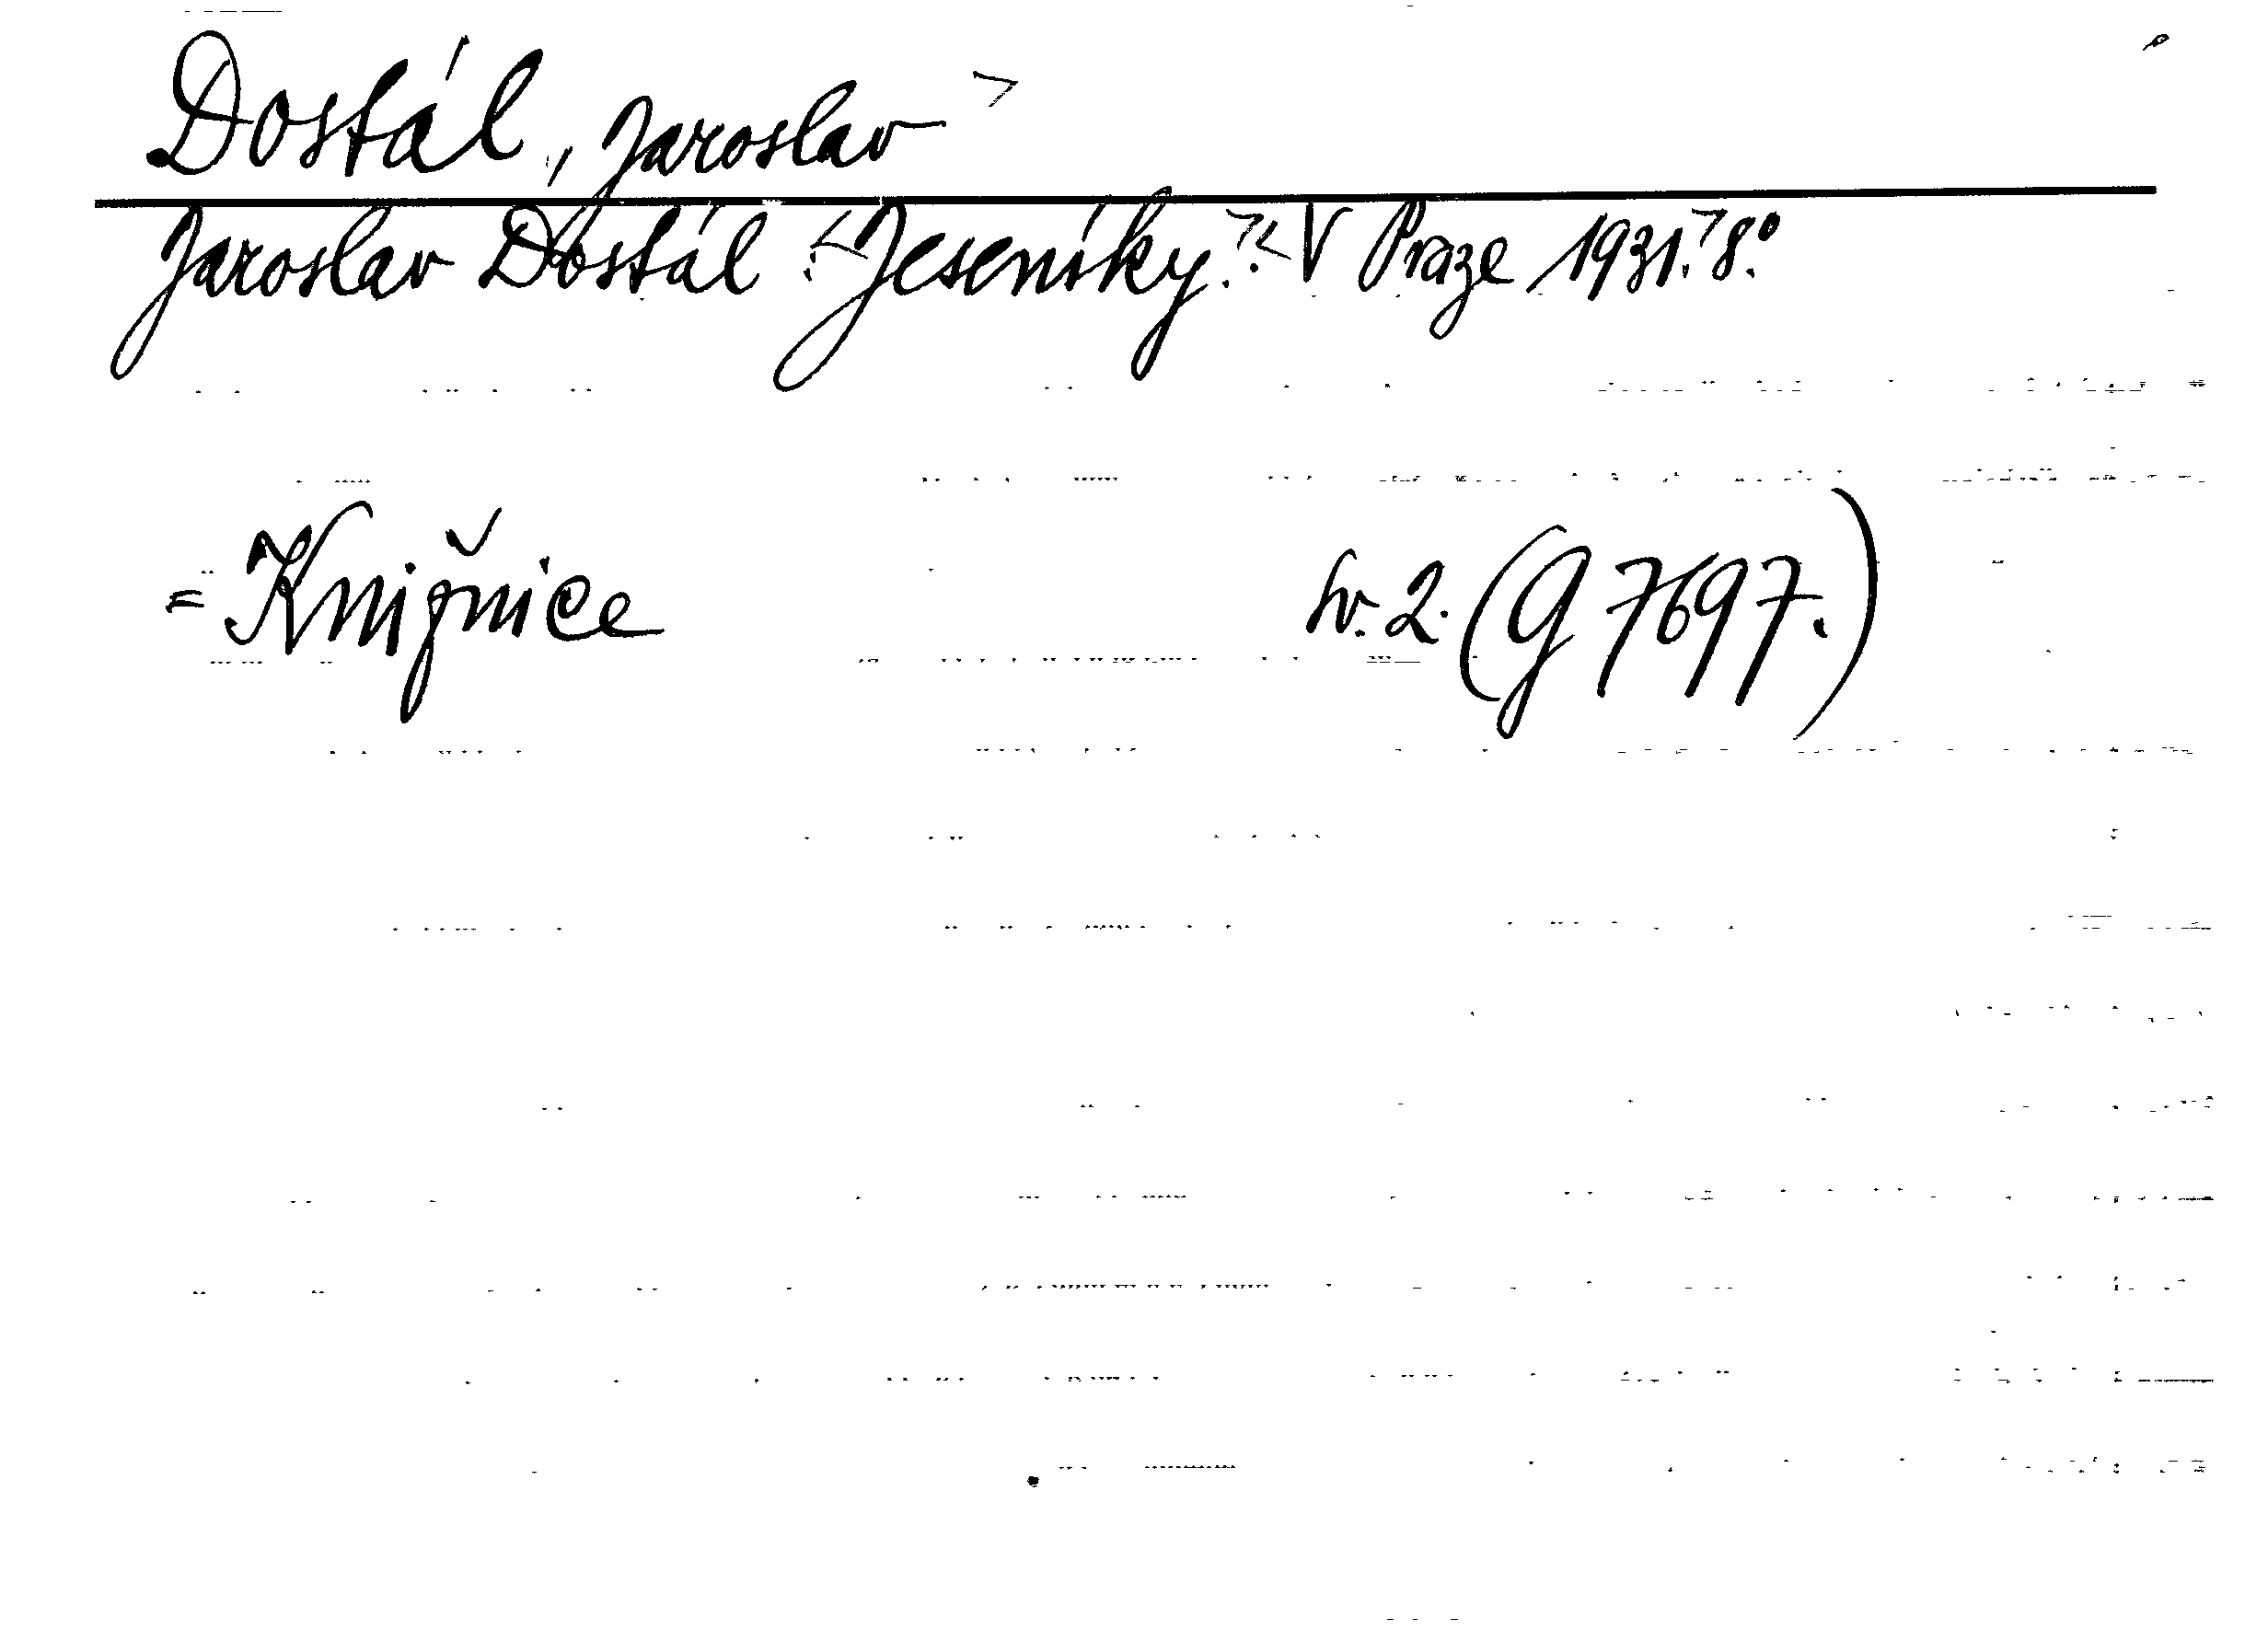 Dostál, Jaroslav >
Jaroslav Dostál : <Jeseníky.>.< V Praze 1931.> 8.°
= Knižnice sv. 2. (G 7697.)